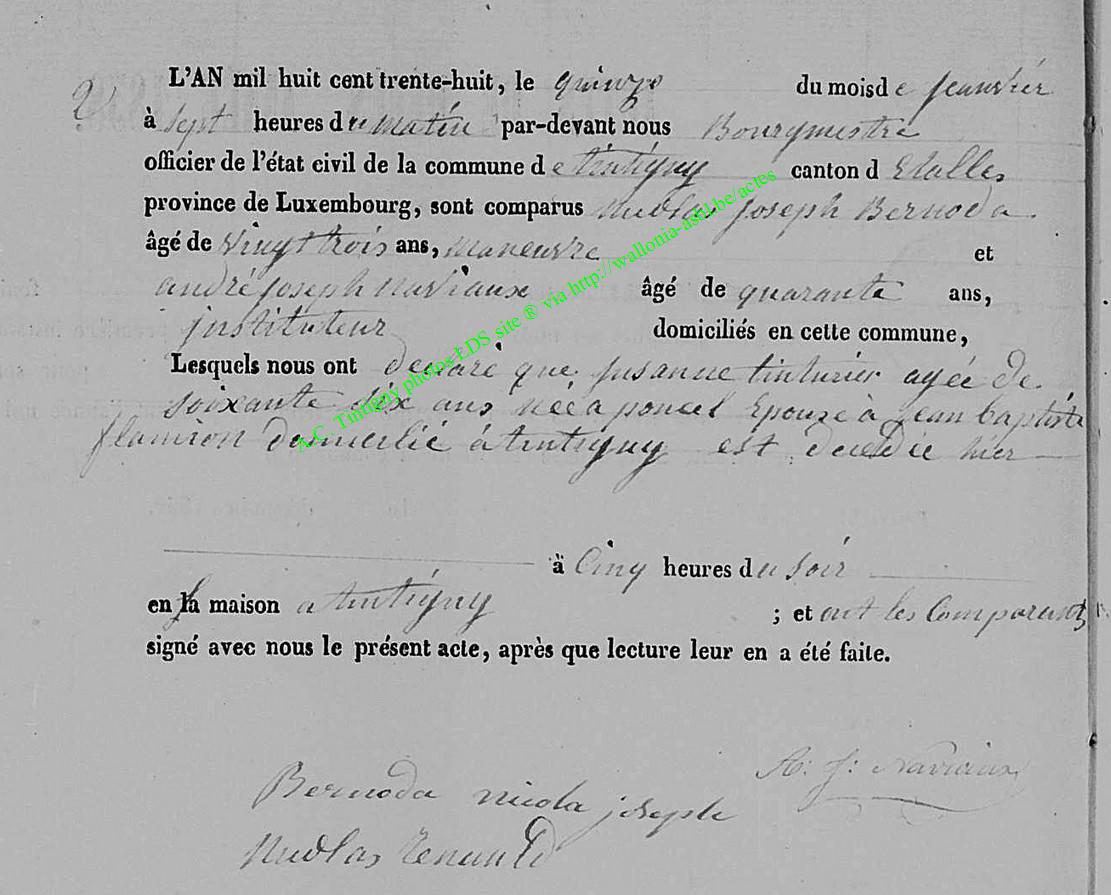 2
L'AN mil huit cent trente-huit, le quinze du mois de jeanvier
à sept heures du matin par-devant nous Bourgmestre
officier de l'état civil de la commune de tintigny canton d Etalles
province de Luxembourg, sont comparus nicolas joseph Bernoda
âgé de vingt trois ans, maneuvre et
andré joseph naviaux âgé de quarante ans,
justituteur domiciliés en cette commune,
Lesquels nous ont declaré que susanne tinturier agée de
soixante dix ans née a poncel Epouze à jean baptiste
flamion domicilié à tintigny est decedée hier
à Cinq heures du soir
en sa maison a tintigny ; et ont les Comparants
signé avec nous le présent acte, après que lecture leur en a été faite.
A. j. naviaux
Bernoda nicola joseph
nicolas
A.C. Tintigny photos EDS site ® via http://wallonia-asbl.be/actes